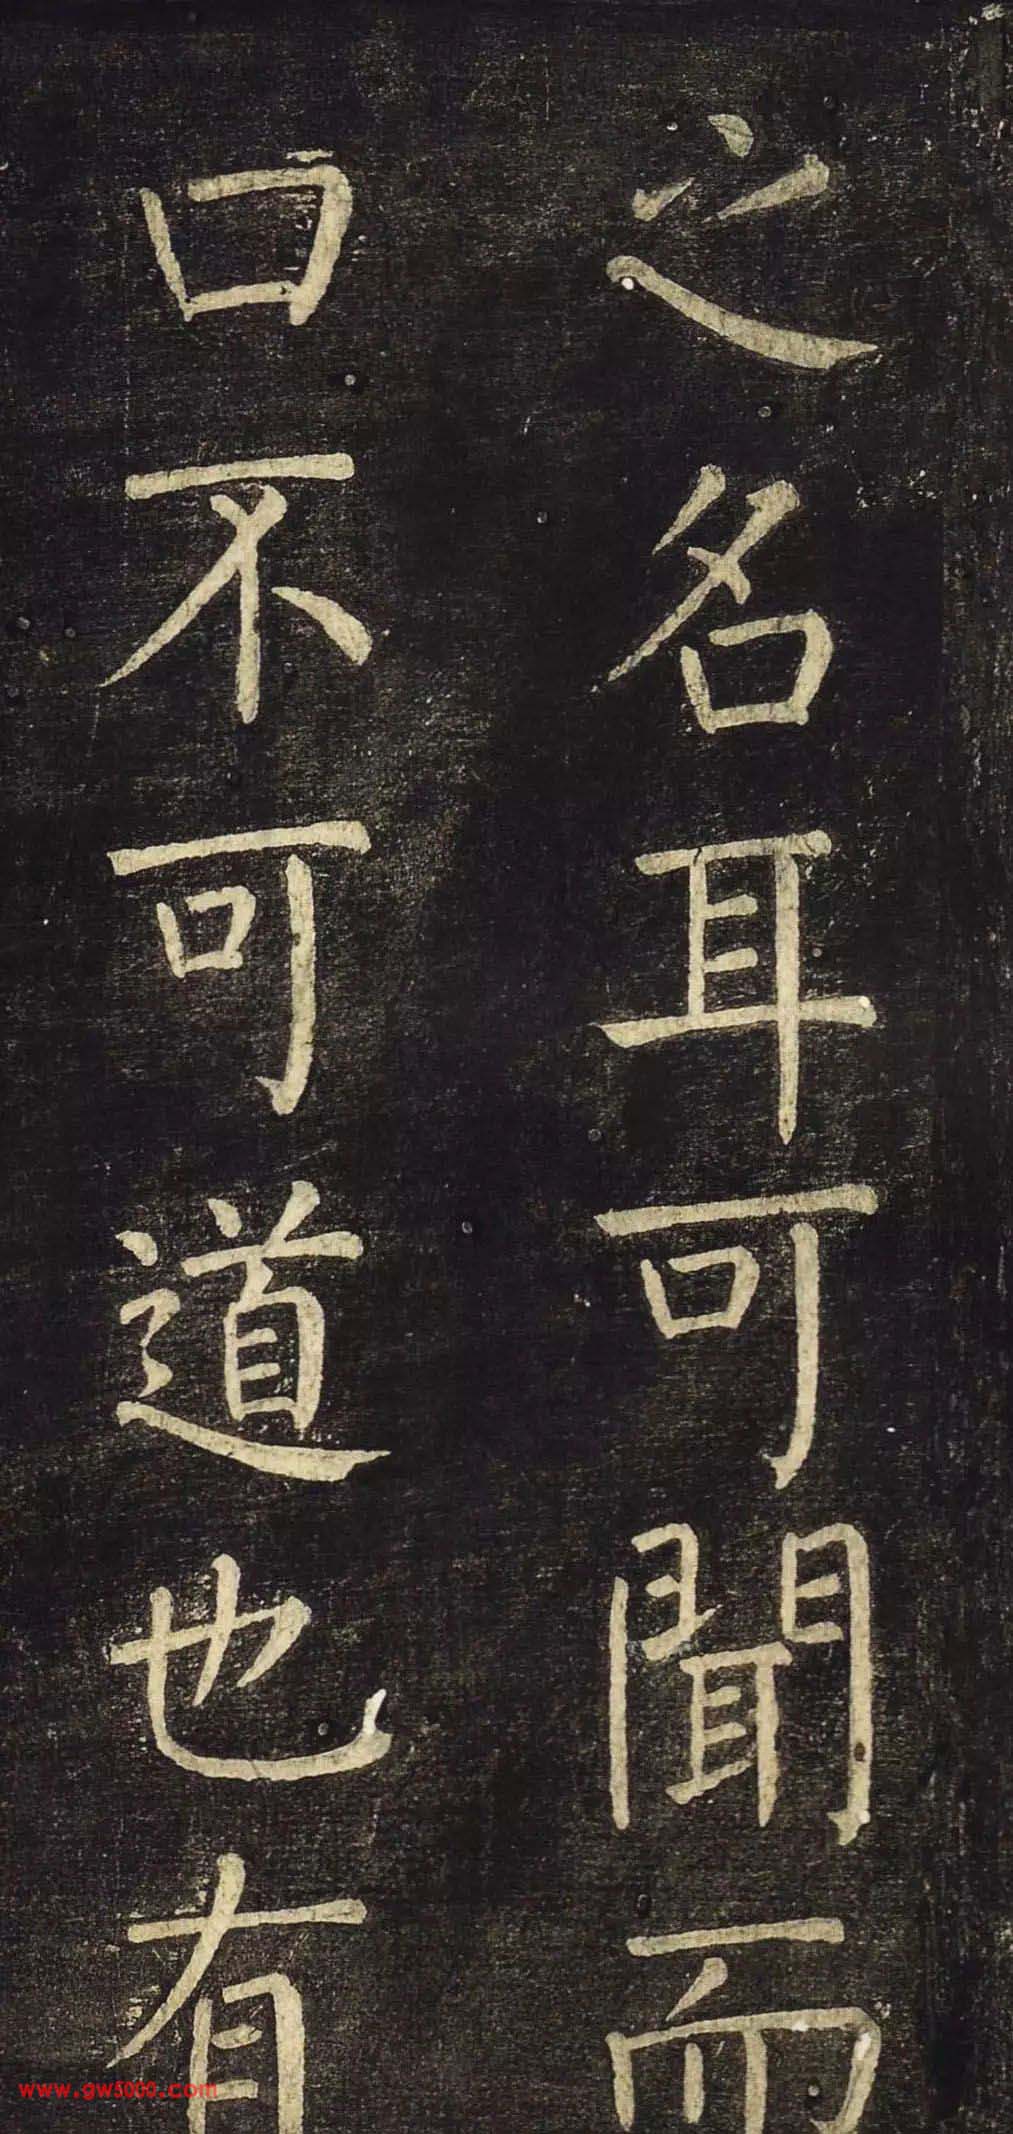 之名耳可聞而
口不可道也有
www.gw5000.com